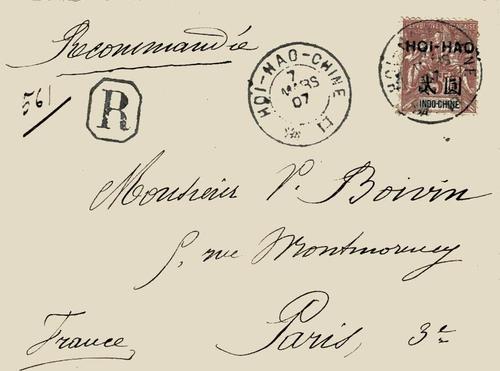 Recommandée
561
R
HOÏ-HAO-CHINE
7
MARS
07
HOI-HAO
INDO-CHINE
Monsieur P. Boivin
5, rue Montmorency
Paris, 3e
France